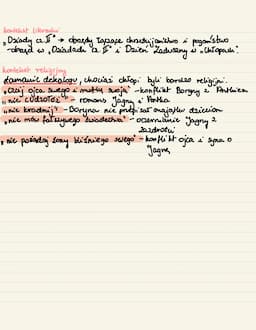 kontekst literacki
„Dziady cz. II" → obrzędy łączące chrześcijaństwo i pogaństwo
- obrzęd w „Dziadach cz. II" i Dzień Zaduszny w „Chłopach".
kontekst religijny
Łamanie dekalogu, chociaż chłopi byli bardzo religijni.
„Czcij ojca swego i matkę swoją" - konflikt Boryny z Antkiem
„nie cudzołóż" - romans Jagny i Antka
„nie kradnij" - Boryna nie przepisał majątku dzieciom
„nie mów fałszywego świadectwa" - oczernianie Jagny z
zazdrości
„nie pożądaj żony bliźniego swego" - konflikt ojca i syna o
Jagnę